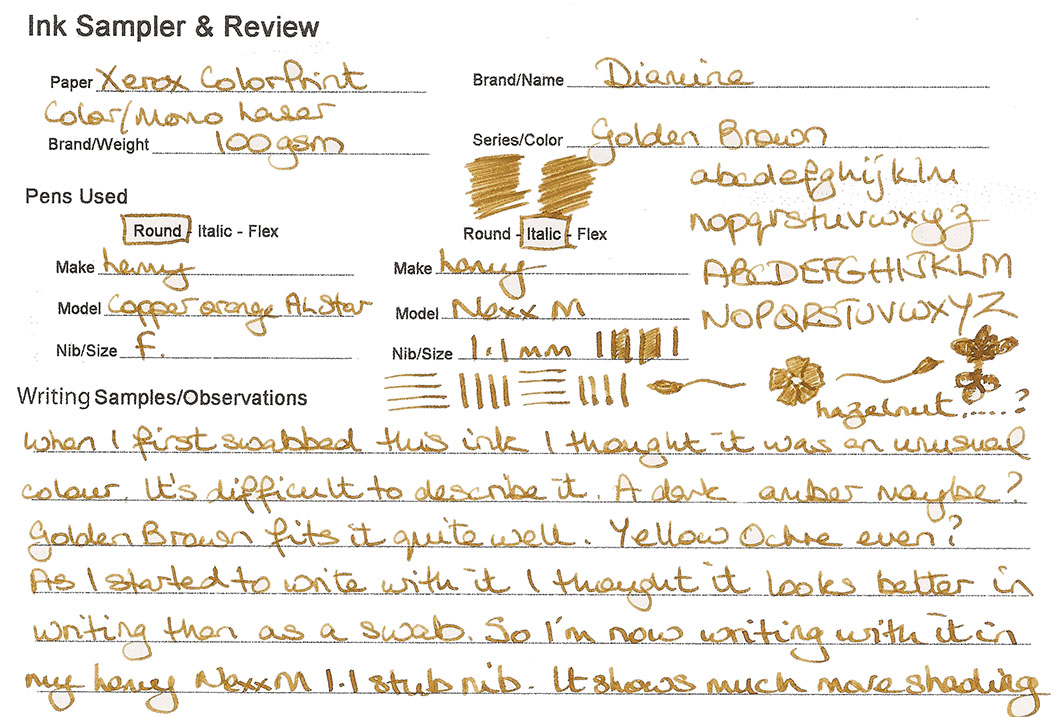 Ink Sampler & Review
Paper Xerox ColorPrint
Color/Mono Laser
Brand/Weight 100gsm
Brand/Name Diamine
Series/Color Golden Brown
abcdefghijklm
nopqrstuvwxyz
ABCDEFGHIJKLM
NOPQRSTUVWXYZ
Pens Used
Round - Italic - Flex
Make Lamy
Model Copper orange AL Star
Nib/Size F.
Round - Italic - Flex
Make Lamy
Model Nexx M
Nib/Size 1.1mm
hazelnut......?
Writing Samples/Observations
When I first swabbed this ink I thought it was an unusual
colour. It's difficult to describe it. A dark amber maybe?
Golden Brown fits it quite well. Yellow Ochre even?
As I started to write with it I thought it looks better in
writing than as a swab. So I'm now writing with it in
my Lamy Nexx M 1.1 stub nib. It shows much more shading